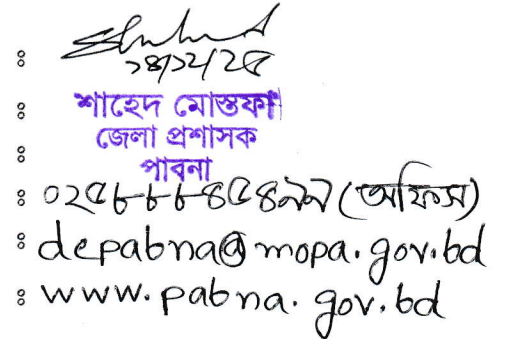 : ১৪/১২/২৫
: শাহেদ মোস্তফা
জেলা প্রশাসক
: পাবনা
: ০২৫৮৮৮৪৫৪৯৯ (অফিস)
: dcpabna@mopa.gov.bd
: www.pabna.gov.bd